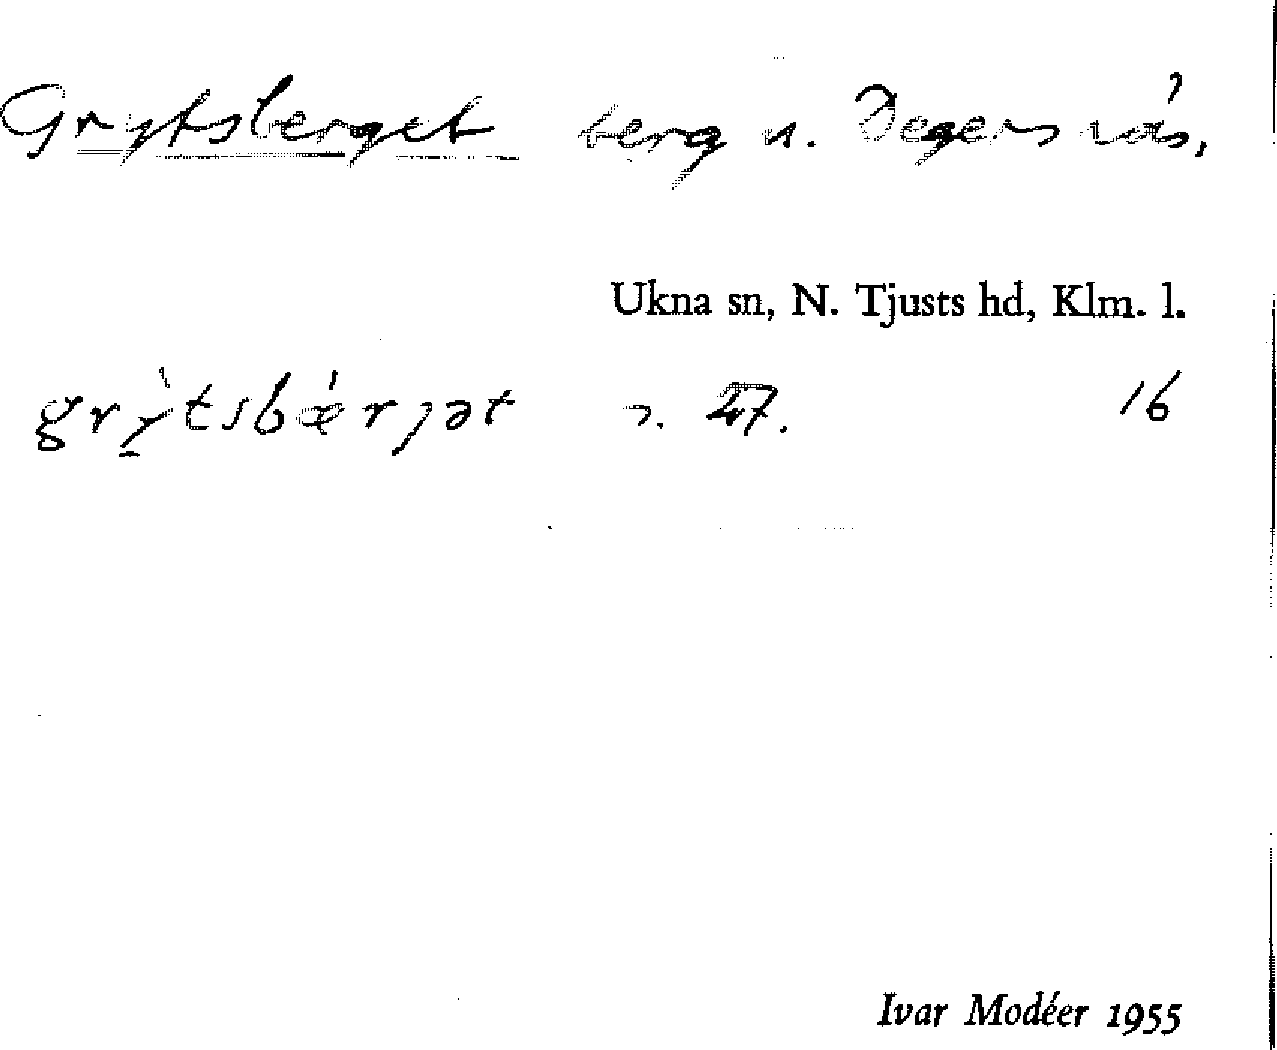 Grytsberget berg n. Degersnäs,
Ukna sn, N. Tjusts hd, Klm. l.
grỳ̠tsbǽrjət 47. 16
Ivar Modéer 1955